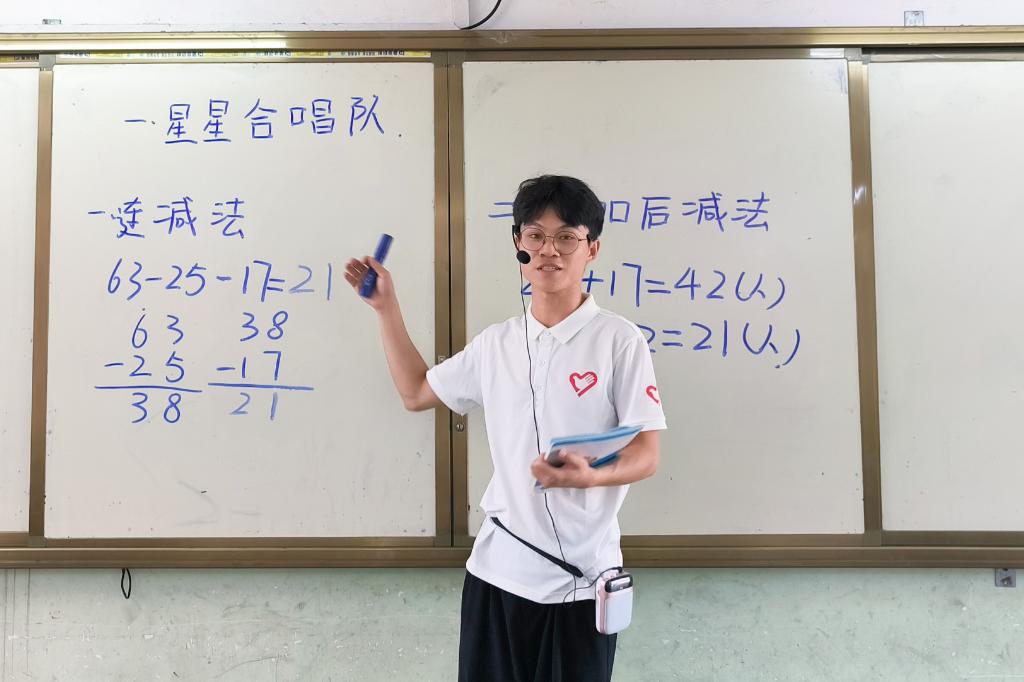 一.星星合唱队.
一.连减法
63-25-17=21
63 38
-25 -17
38 21
二 口后减法
+17=42(人)
2=21(人)